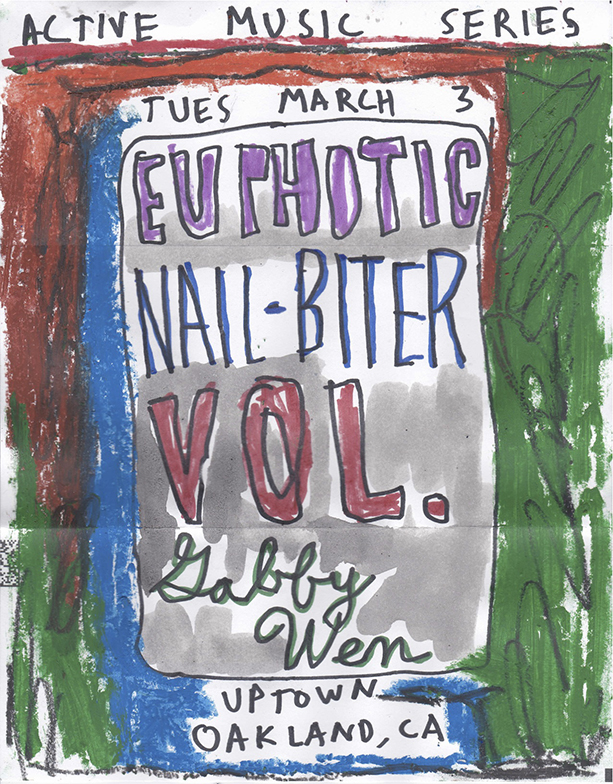 ACTIVE MUSIC SERIES
TUES MARCH 3
EUPHOTIC
NAIL-BITER
VOL.
Gabby
Wen
UPTOWN
OAKLAND, CA